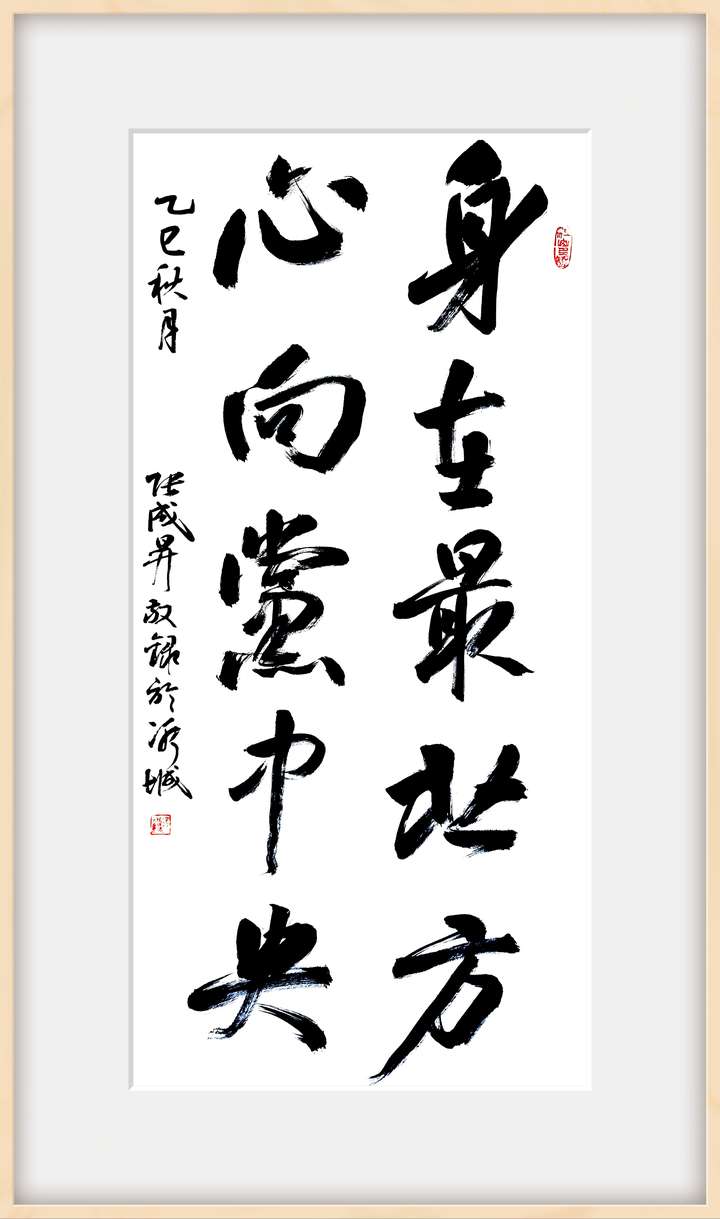 身在最北方
心向黨中央
乙巳秋月
張成昇敬録於冰城